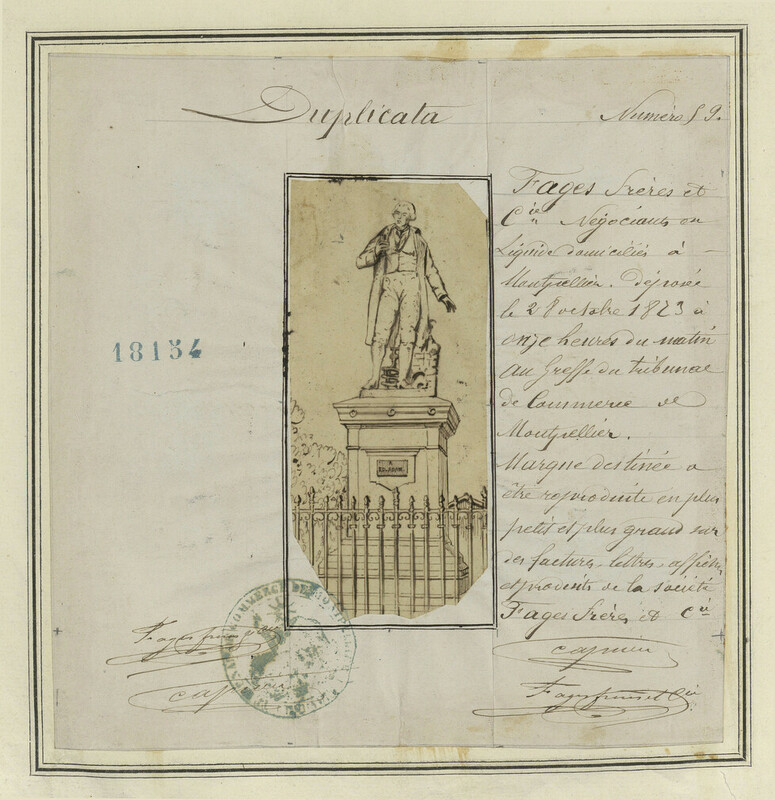 Duplicata
Numéro 59.
Fages frères et
Cie Négociants en
Liquide domiciliés à
Montpellier. déposée
le 28 octobre 1873 à
onze heures du matin
au Greffe du tribunal
de Commerce de
Montpellier.
Marque destinée a
être reproduite en plus
petit et plus grand sur
des factures, lettres, affiches
et produits de la société
Fages frères et Cie
18154
A
ED. ADAM
COMMERCE DE MONTPELLIER
Fages frères et Cie